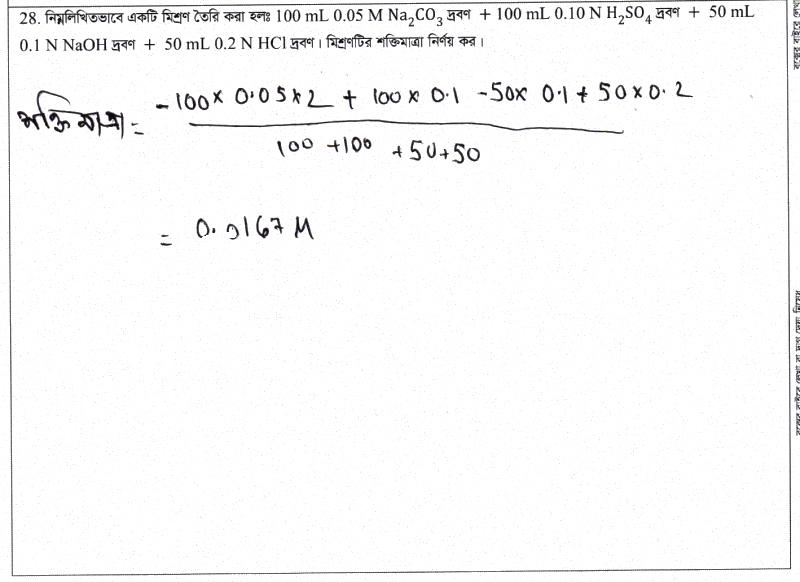 28. নিম্নলিখিতভাবে একটি মিশ্রণ তৈরি করা হলঃ 100 mL 0.05 M Na₂CO₃ দ্রবণ + 100 mL 0.10 N H₂SO₄ দ্রবণ + 50 mL
0.1 N NaOH দ্রবণ + 50 mL 0.2 N HCl দ্রবণ। মিশ্রণটির শক্তিমাত্রা নির্ণয় কর।
-100 × 0.05 × 2 + 100 × 0.1 - 50 × 0.1 + 50 × 0.2
শক্তিমাত্রা =
100 + 100 + 50 + 50
= 0.0167 M